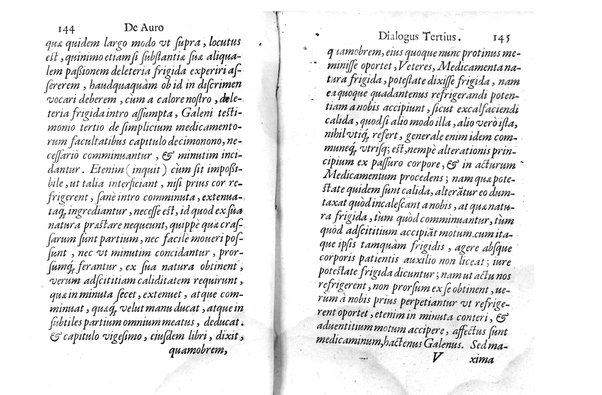 144 De Auro
quæ quidem largo modo vt supra, locutus
est, quinimo etiamsi substantiæ suæ aliqua-
lem passionem deleteria frigida experiri as-
sererem, haudquaquam ob id in discrimen
vocari deberem, cum a calore nostro, dele-
teria frigida intro assumpta, Galeni testi-
monio tertio de simplicium medicamento-
rum facultatibus capitulo decimonono, ne-
cessario comminuantur, & minutim inci
dantur. Etenim (inquit) cum sit impossi-
bile, ut talia interficiant, nisi prius cor re-
frigerent, sanè intro comminuta, extenua-
taq́, ingrediantur, necesse est, id quod ex sua
natura præstare nequeunt, quippe quæ cras-
sarum sunt partium, nec facile moueri pos-
sunt, nec vt minutim concidantur, pror-
sumq́, ferantur, ex sua natura obtinent,
verum adscititiam caliditatem requirunt,
quæ in minuta secet, extenuet, atque com-
minuat, quæq́, velut manu ducat, atque in
subtiles partium omnium meatus, deducat.
& capitulo vigesimo, eiusdem libri, dixit,
quamobrem,
Dialogus Tertius. 145
quamobrem, eius quoque nunc protinus me-
minisse oportet, Veteres, Medicamenta na-
tura frigida, potestate dixisse frigida, nam
ea quoque quodantenus refrigerandi poten-
tiam a nobis accipiunt, sicut excalfaciendi
calida, quod si alio modo illa, alio verò ista,
nihil vtiq́, refert, generale enim idem com-
muneq́, vtrisq; est, nempè alterationis prin-
cipium ex passuro corpore, & in acturum
Medicamentum procedens; nam quæ pote-
state quidem sunt calida, alterãtur eo dum-
taxat quòd incalescant a nobis, at quæ natu-
ra frigida, tùm quòd comminuantur, tùm
quòd adscititium accipiãt motum. cum ita-
que ipsis tamquàm frigidis, agere absque
corporis patientis auxilio non liceat; iure
potestate frigida dicuntur; nam ut actu nos
refrigerent, non prorsum ex se obtinent, ue-
rum a nobis prius perpetiantur vt refrige-
rent oportet, etenim in minuta conteri, &
aduentitium motum accipere, affectus sunt
medicaminum, hactenus Galenus. Sed ma-
V xima